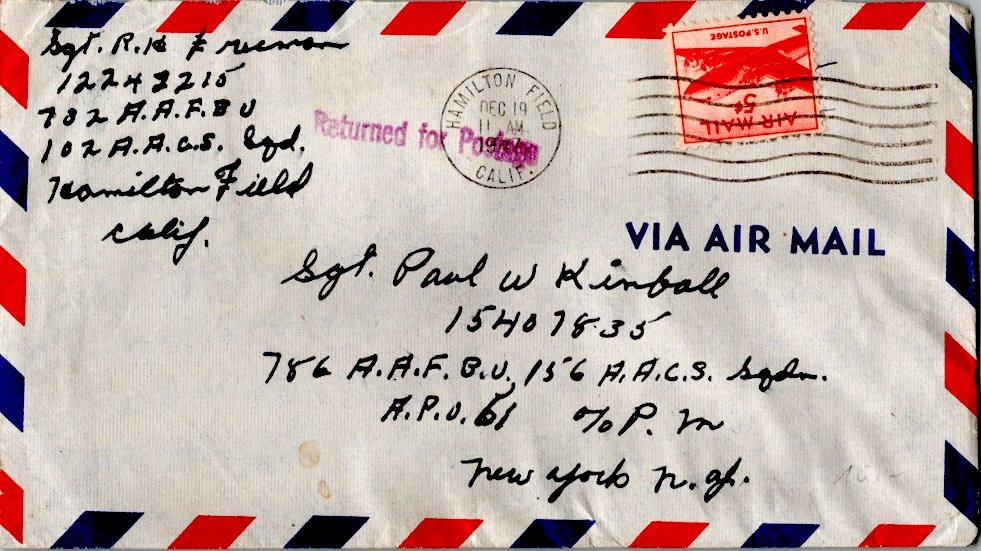 Sgt. R. H Freeman
12242215
702 A.A.F.B U
102 A.A.C.S. Sqd.
Hamilton Field
Calif.
Returned for Postage
HAMILTON FIELD
DEC 19
11 AM
1946
CALIF.
U.S. POSTAGE
5¢
AIR MAIL
VIA AIR MAIL
Sgt. Paul W Kimball
15407835
786 A.A.F. B.U. 156 A.A.C.S. Sqdn.
A.P.O. 61 c/o P. M
New York N. Y.